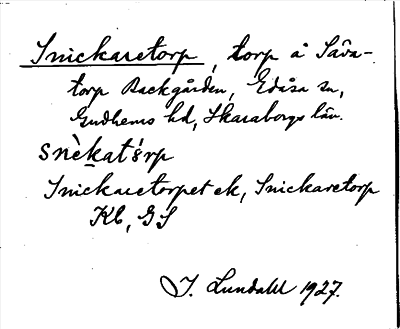 Snickaretorp, torp å Säva-
torp Backgården, Edåsa sn,
Gudhems hd, Skaraborgs län.
snèkatårp
Snickaretorpet ek, Snickaretorp
Kb, GS
J. Lundahl 1927.